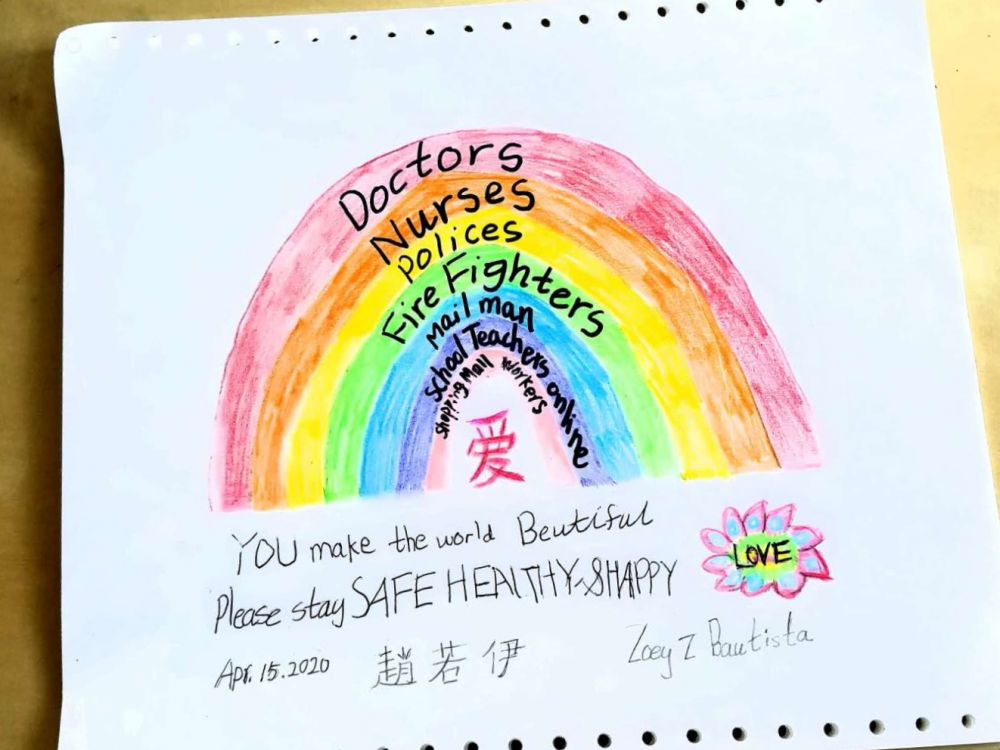 Doctors
Nurses
polices
Fire Fighters
Mail man
School Teachers online
shopping Mall workers
爱
YOU make the world Beutiful
LOVE
Please stay SAFE HEALTHY & HAPPY
Apr. 15. 2020 趙若伊 Zoey Z Bautista